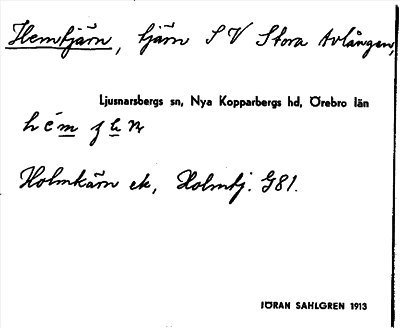 Hemtjärn, tjärn SV Stora Avlången,
Ljusnarsbergs sn, Nya Kopparbergs hd, Örebro län
Holmkärn ek, Holmtj. G81.
JÖRAN SAHLGREN 1913